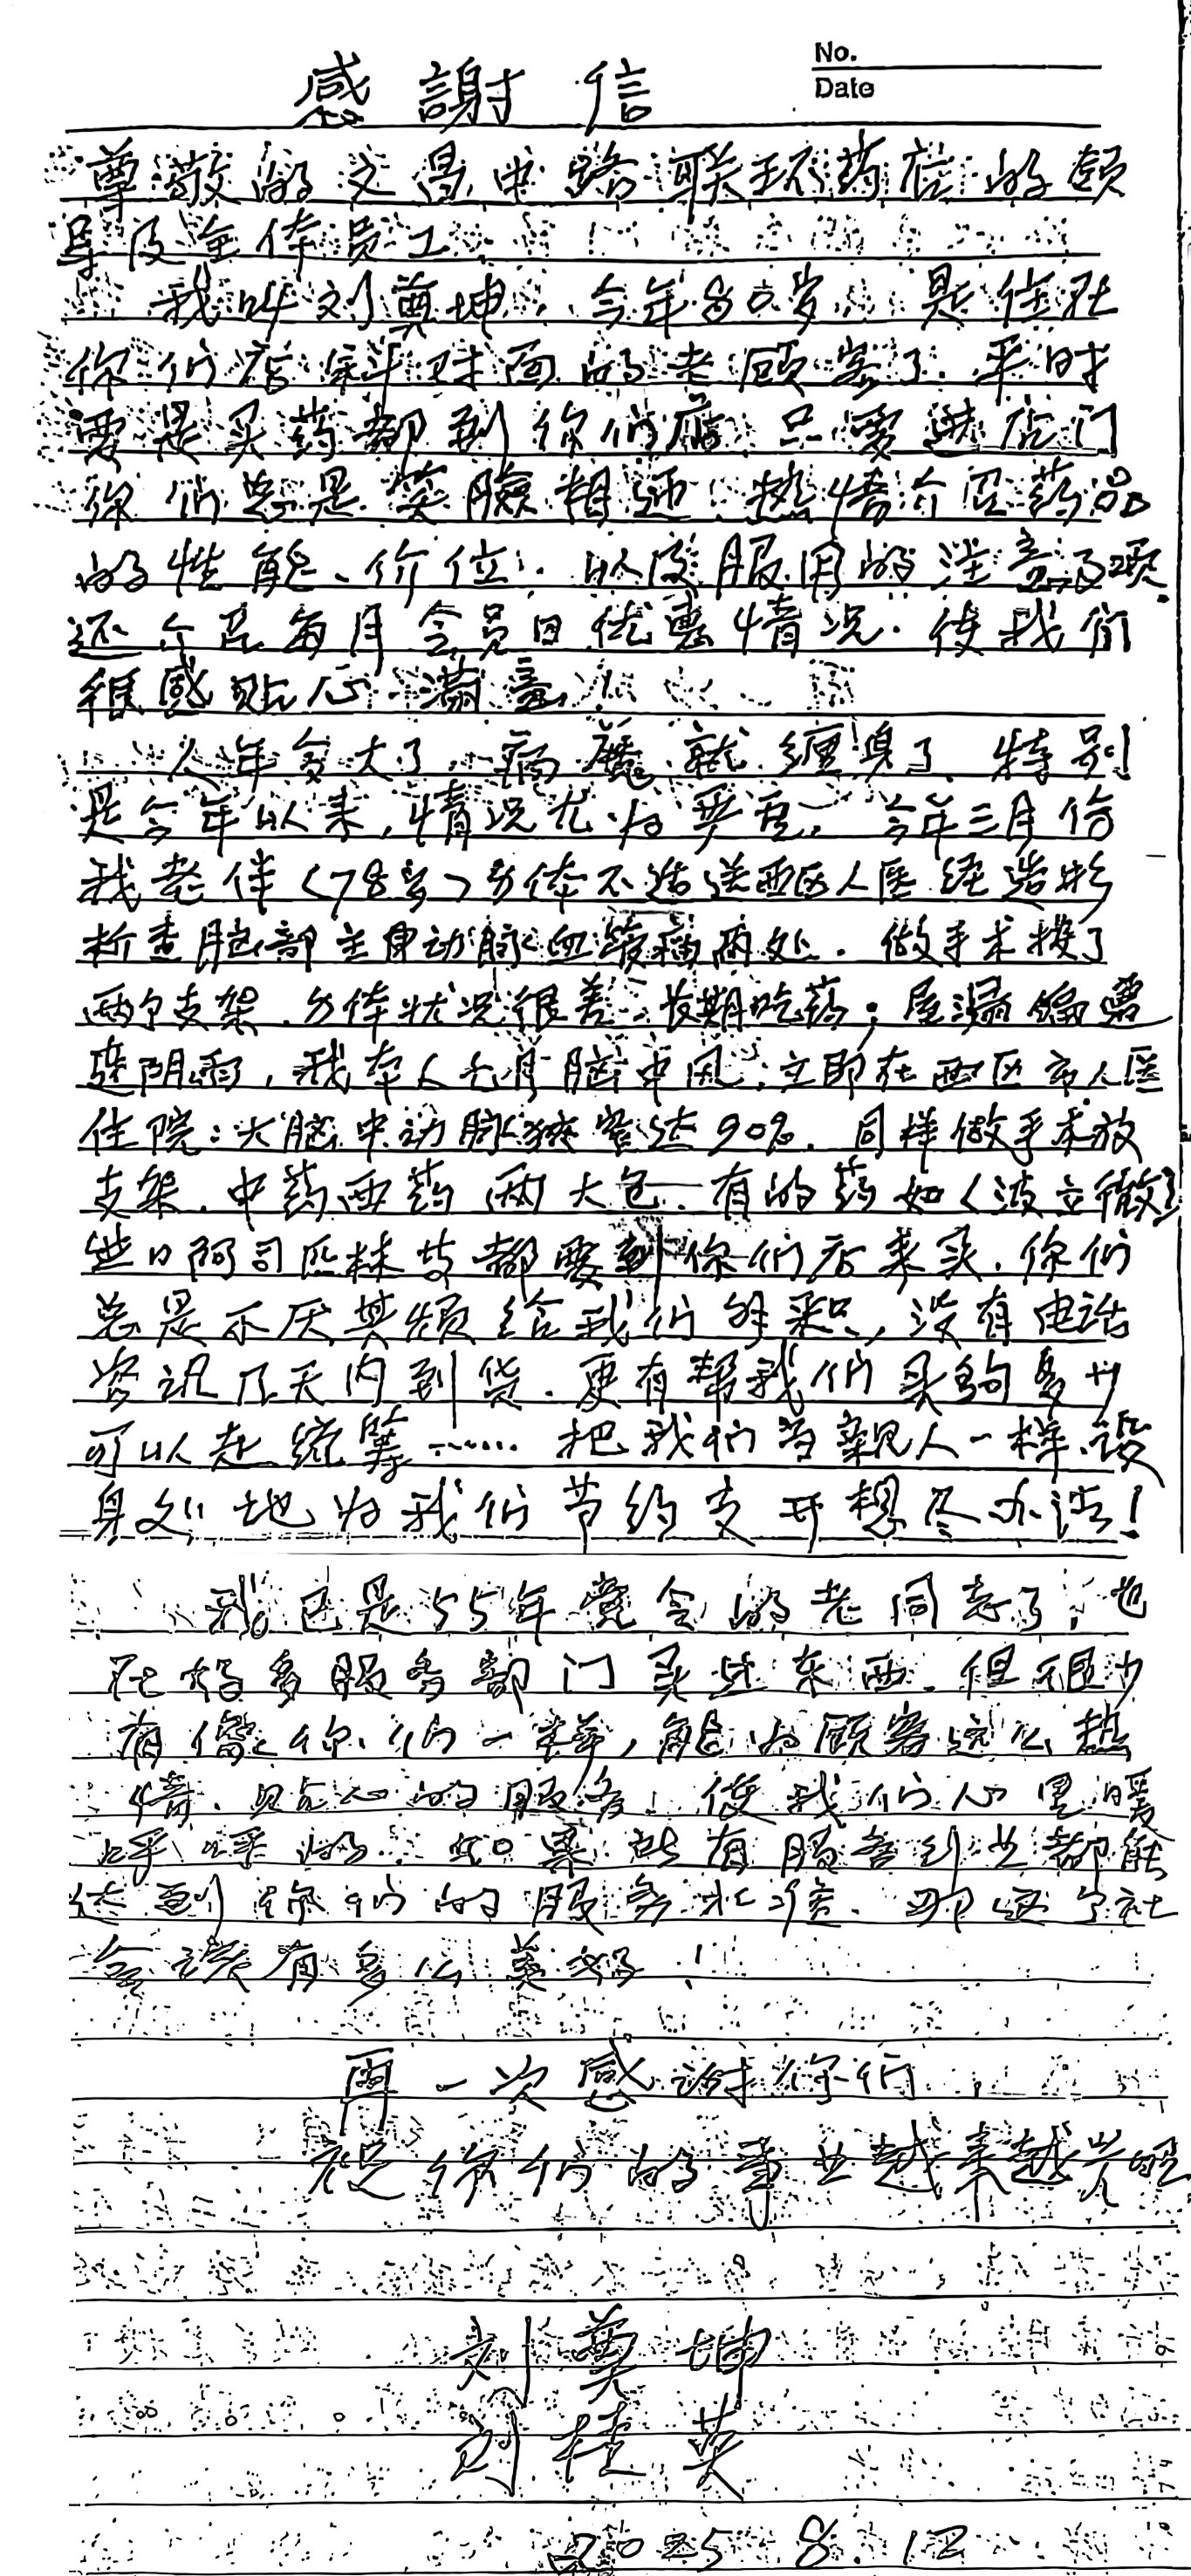 No.
Date
感謝信
尊敬的文昌中路联环药店的领
导及全体员工
我叫刘奠坤，今年80岁，是住在
你们店斜对面的老顾客了.平时
要是买药都到你们店.只要进店门
你们总是笑臉相迎.热情介召药品
的性能、价位.以及服用的注意事项.
还介召每月会员日优惠情况.使我们
很感贴心满意.
人年多大了，病魔就缠身了.特别
是今年以来,情况尤为严重,今年三月份
我老伴(78岁)身体不适送西区人医经造影
析查脑部主身动脉血管瘤两处.做手术搜了
两个支架.身体状况很差.长期吃药;屋漏偏遭
连阴雨,我本人七月脑中风,立即在西区市人医
住院:大脑中动脉狭窄达90%.同样做手术放
支架.中药西药两大包.有的药如(波立徽)
些口阿司匹林艾都要到你们店来买.你们
总是不厌其烦给我们解釈,没有电话
咨讯几天内到货.更有帮我们买夠多少
可以走统筹……把我们当親人一样.设
身处地为我们节约支开想尽办法!
我已是55年党令的老同志了,也
在好多服务部门买些东西.但很少
有像你们一样,能为顾客这么热
情.贴心的服务.使我们心里暖
呼呼的.如果所有服务行业都能
达到你们的服务水准.那这个社
会该有多么美好!
再一次感谢你们
祝你们的事业越来越兴旺
刘奠坤
刘桂英
2025 8.12